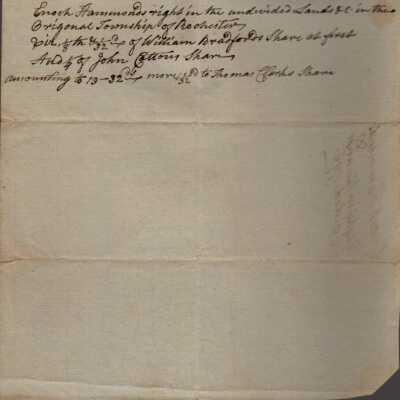 Enoch Hammonds right in the undivided Lands &c in the
Origonal Township of Rochester
Viz. 1/8th & 1/32d of William Bradfords Share at first
And 1/4 of John Cottons Share
amounting to 13-32ds more 1/32d to Thomas Clarks Share